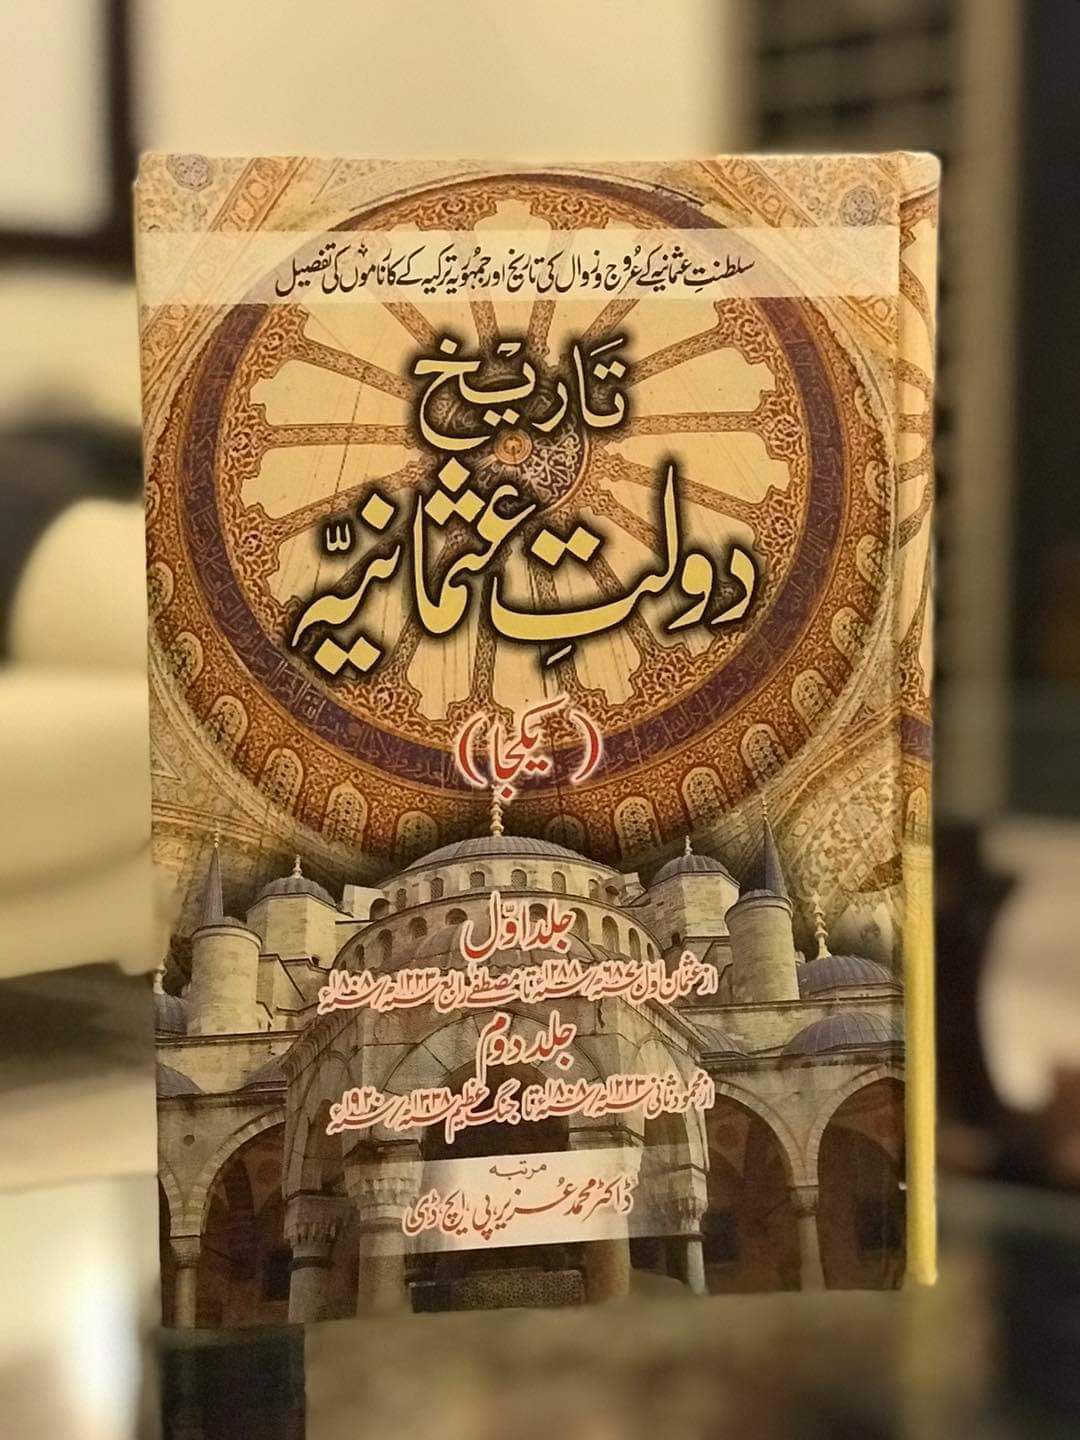 سلطنتِ عثمانیہ کے عُروج و زوال کی تاریخ اور جمہُوریہ ترکیہ کے کارناموں کی تفصیل
تاریخ
دولتِ عثمانیہّ
(یکجا)
جلد اوّل
از عثمان اوّل ۶۸۷ھ/۱۲۸۸ء تا مصطفےٰ رابع ۱۲۲۳ھ/۱۸۰۸ء
جلد دوم
از محمود ثانی ۱۲۲۳ھ/۱۸۰۸ء تا جنگ عظیم ۱۳۳۸ھ/۱۹۲۰ء
مرتبہ
ڈاکٹر محمد عُزیر، پی، ایچ، ڈی